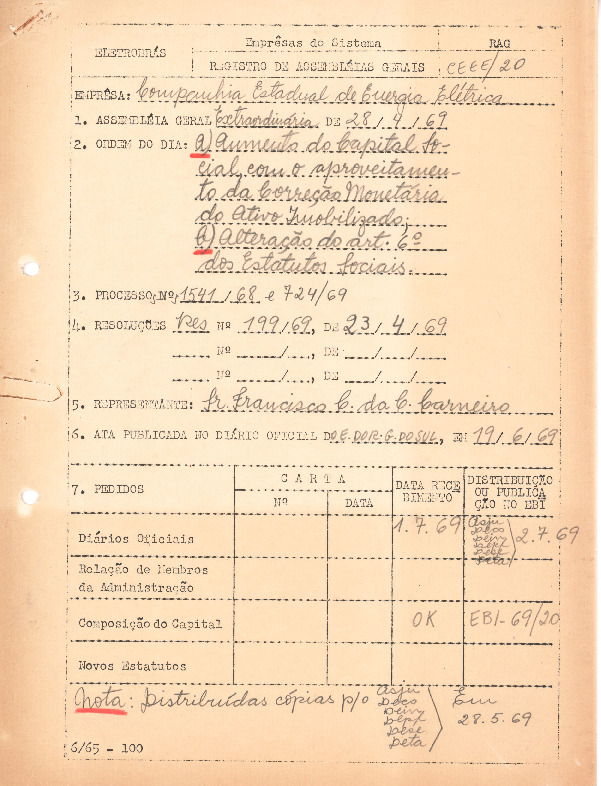 ELETROBRÁS
Emprêsas do Sistema
RAG
REGISTRO DE ASSEMBLÉIAS GERAIS
CEEE/20
EMPRÊSA: Companhia Estadual de Energia Elétrica
1. ASSEMBLÉIA GERAL Extraordinária DE 28/4/69
2. ORDEM DO DIA: a) Aumento do Capital So-
cial com o aproveitamen-
to da Correção Monetária
do Ativo Imobilizado;
b) Alteração do art. 6º
dos Estatutos Sociais.
3. PROCESSO, Nº, 1541/68 e 724/69
4. RESOLUÇÕES Res Nº 199/69, DE 23/4/69
Nº / , DE / /
Nº / , DE / /
5. REPRESENTANTE: Sr. Francisco C. da C. Carneiro
6. ATA PUBLICADA NO DIÁRIO OFICIAL DO E. DO R. G. DO SUL, EM 19/6/69
7. PEDIDOS
CARTA
Nº
DATA
DATA RECE
BIMENTO
DISTRIBUIÇÃO
OU PUBLICA
ÇÃO NO EBI
Diários Oficiais
1.7.69
Asju
Deco
Deinv
Depl
Dese
Deta
2.7.69
Relação de Membros
da Administração
Composição do Capital
OK
EBI-69/20
Novos Estatutos
Nota: Distribuídas cópias p/o
Asju
Deco
Deinv
Depl
Dese
Deta
Em
28.5.69
6/65 - 100